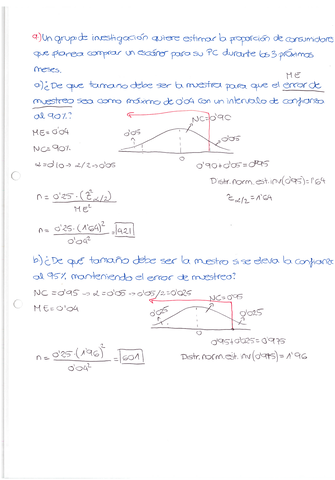 9) Un grupo de investigación quiere estimar la proporción de consumidores
que planea comprar un escáner para su PC durante los 3 próximos
meses.
ME
a) ¿De que tamaño debe ser la muestra para que el error de
muestreo sea como máximo de 0'04 con un intervalo de confianza
al 90%?
NC=0'90
ME=0'04
0'05
0'05
NC=90%
0
α=0'10→α/2=0'05
0'90+0'05=0'95
Distr.norm.est.inv(0'95)=1'64
n = 0'25·(Z α/2)²
ME²
Z α/2=1'64
n = 0'25·(1'64)² = 421
0'04²
b) ¿De qué tamaño debe ser la muestra si se eleva la confianza
al 95% manteniendo el error de muestreo?
NC=0'95→α=0'05→0'05/2=0'025
NC=0'95
ME=0'04
0'025
0'025
0
0'95+0'025=0'975
n = 0'25·(1'96)² = 601
0'04²
Distr.norm.est.inv(0'975)=1'96